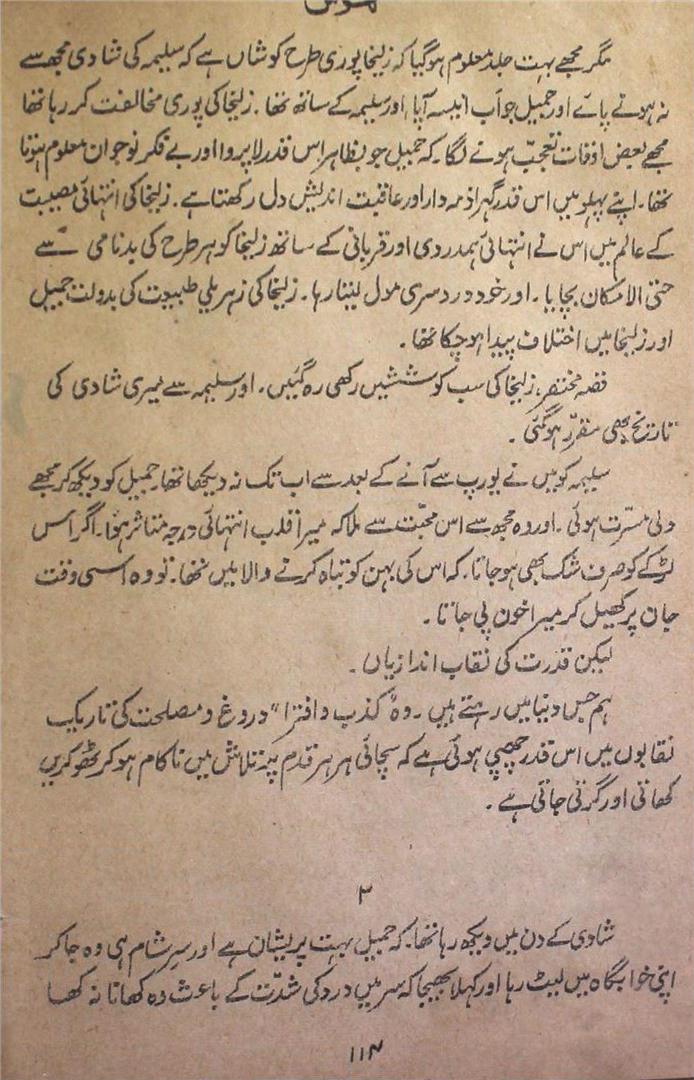 مگر مجھے بہت جلد معلوم ہوگیا کہ زلیخا پوری طرح کوشاں ہے کہ سلیمہ کی شادی مجھ سے
نہ ہونے پائے اور جمیل جو اَب ایسے آپا اور سلیمہ کے ساتھ تھا۔ زلیخا کی پوری مخالفت کر رہا تھا
مجھے بعض اوقات تعجب ہونے لگا۔ کہ جمیل جو بظاہر اس قدر لا پروا اور بے فکر نوجوان معلوم ہوتا
تھا۔ اپنے پہلو میں اس قدر گہرا ذمہ دار اور عاقبت اندیش دل رکھتا ہے۔ زلیخا کی انتہائی مصیبت
کے عالم میں اس نے انتہائی ہمدردی اور قربانی کے ساتھ زلیخا کو ہر طرح کی بدنامی سے
حتی الامکان بچایا۔ اور خود دردسری مول لیتا رہا۔ زلیخا کی زہریلی طبیعت کی بدولت جمیل
اور زلیخا میں اختلاف پیدا ہوچکا تھا۔
قصہ مختصر، زلیخا کی سب کوششیں رکھی رہ گئیں۔ اور سلیمہ سے میری شادی کی
تاریخ بھی مقرر ہوگئی۔
سلیمہ کو میں نے یورپ سے آنے کے بعد سے اب تک نہ دیکھا تھا جمیل کو دیکھ کر مجھے
دلی مسرت ہوئی۔ اور وہ مجھ سے اس محبت سے ملا کہ میرا قلب انتہائی درجہ متاثر ہوا۔ اگر اس
لڑکے کو صرف شک بھی ہوجاتا۔ کہ اس کی بہن کو تباہ کرنے والا میں تھا۔ تو وہ اسی وقت
جان پر کھیل کر میرا خون پی جاتا۔
لیکن قدرت کی نقاب اندازیاں۔
ہم جس دنیا میں رہتے ہیں۔ وہ "کذب و افترا" دروغ و مصلحت کی تاریک
نقابوں میں اس قدر چھپی ہوئی ہے کہ سچائی ہر ہر قدم پہ تلاش میں ناکام ہوکر ٹھوکریں
کھاتی اور گرتی جاتی ہے۔
۳
شادی کے دن میں دیکھ رہا تھا۔ کہ جمیل بہت پریشان ہے اور سرِ شام ہی وہ جا کر
اپنی خوابگاہ میں لیٹ رہا اور کہلا بھیجا کہ سر میں درد کی شدّت کے باعث وہ کھانا نہ کھا
۱۱۴